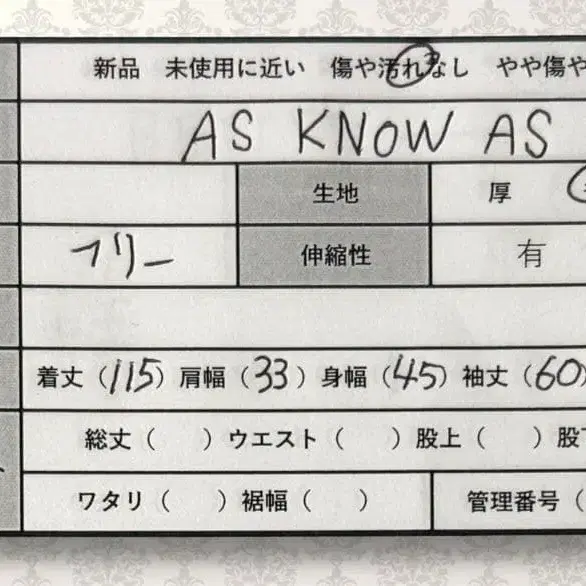 新品 未使用に近い 傷や汚れなし やや傷や
AS KNOW AS
生地 厚
フリー 伸縮性 有
着丈（115）肩幅（33）身幅（45）袖丈（60）
総丈（ ）ウエスト（ ）股上（ ）股下
ワタリ（ ）裾幅（ ） 管理番号（